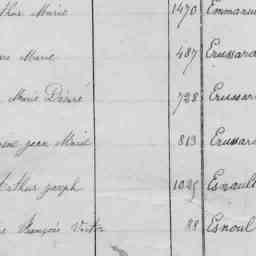 Marie 1470 Emmanu
Marie 487 Erussard
Marie Désiré 728 Erussar
Jean Marie 813 Erussar
Arthur Joseph 1025 Esnault
François Victor 88 Esnoul